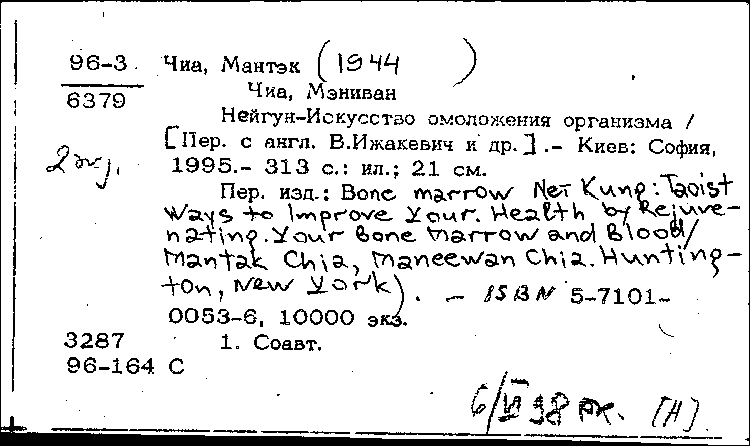 96-3 Чиа, Мантэк (1944 )
6379 Чиа, Мэниван
Нейгун-Искусство омоложения организма /
[Пер. с англ. В.Ижакевич и др.].- Киев: София,
2 экз. 1995.- 313 с.: ил.; 21 см.
Пер. изд.: Bone marrow Nei Kung: Taoist
Ways to Improve Your. Health by Rejuve-
nating. Your Bone Marrow and Blood/
Mantak Chia, Maneewan Chia. Hunting-
ton, New York). - ISBN 5-7101-
0053-6, 10000 экз.
3287 1. Соавт.
96-164 С
6/VI 98 РК. [Н].